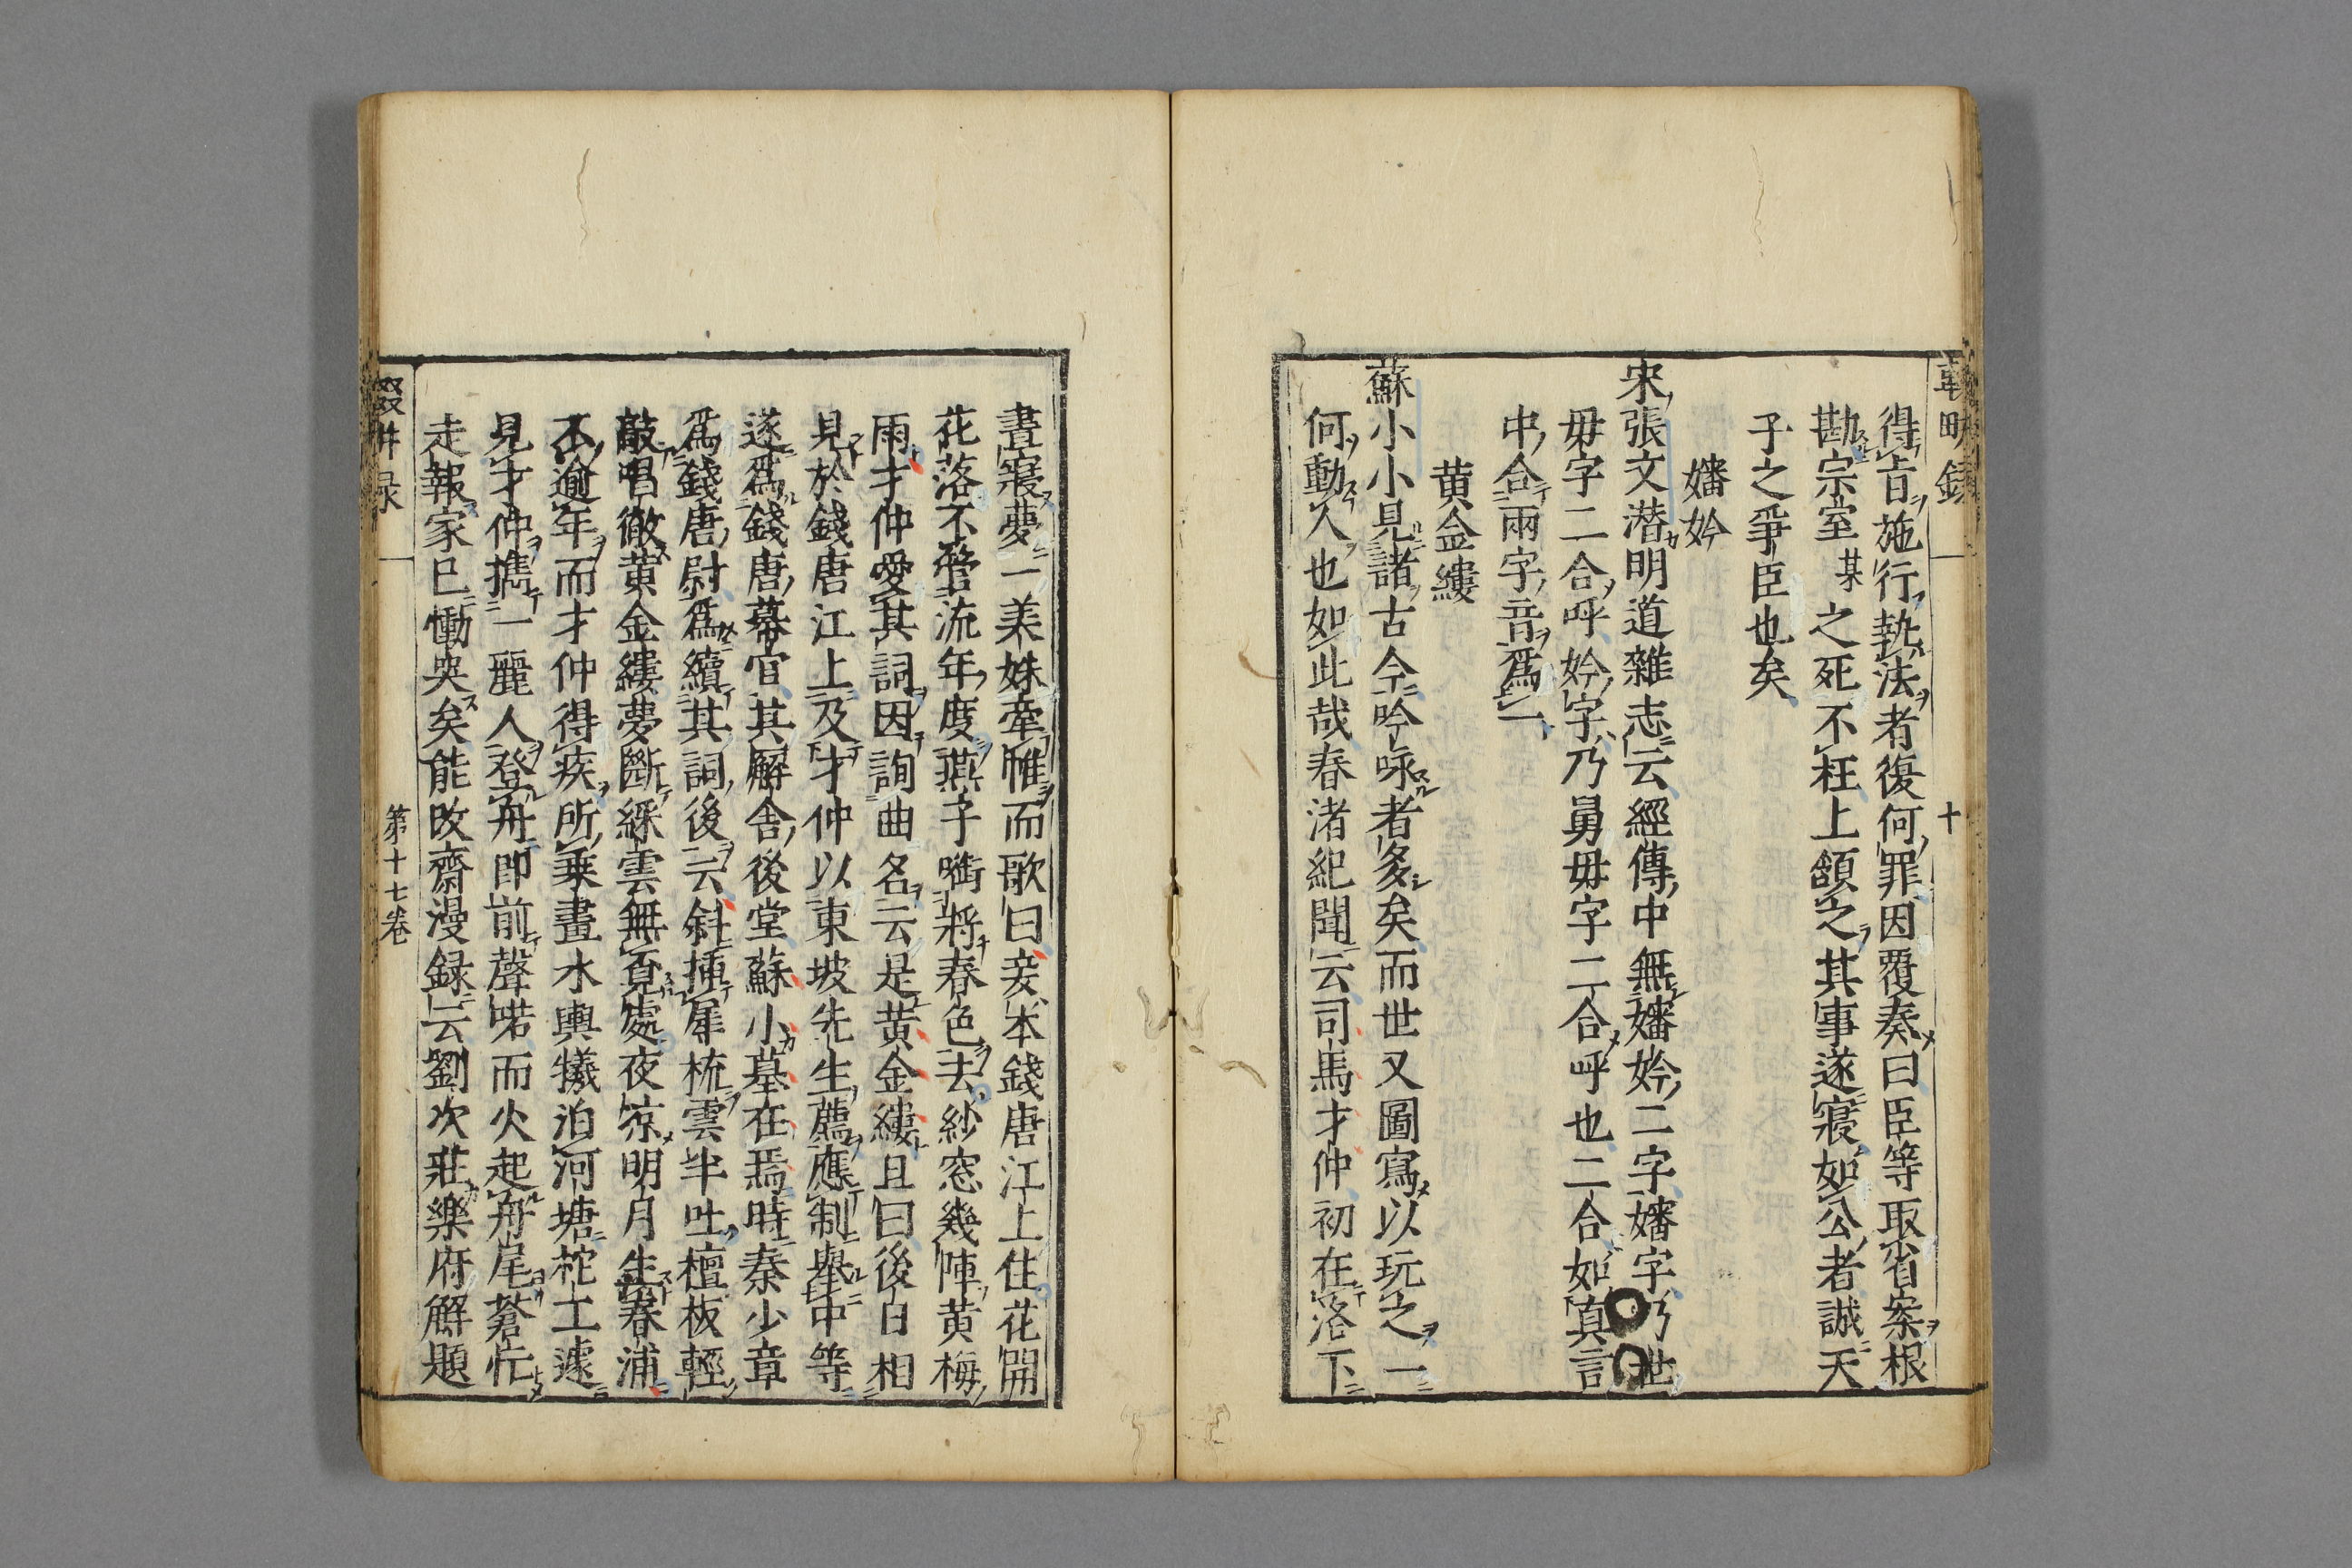 得㫖施行執法者復何罪因覆奏曰臣等取省案根
勘宗室某之死不枉上頷之其事遂寢如公者誠天
子之爭臣也矣
嬸妗
宋張文潜明道雜志云經傳中無嬸妗二字嬸字乃世
毋字二合呼妗字乃舅毋字二合呼也二合如真言
中合兩字音爲一
黄金縷
蘇小小見諸古今吟咏者多矣而世又圖寫以玩之一
何動人也如此哉春渚紀聞云司馬才仲初在洛下
晝寢夢一美姝牽帷而歌曰妾本錢唐江上住花開
花落不管流年度燕子啣將春色去紗窓幾陣黄梅
雨才仲愛其詞因詢曲名云是黄金縷且曰後日相
見於錢唐江上及才仲以東坡先生薦應制舉中等
遂爲錢唐幕官其廨舎後堂蘇小墓在焉時秦少章
爲錢唐尉爲續其詞後云斜揷犀梳雲半吐檀板輕
敲唱徹黄金縷夢斷綵雲無覓處夜凉明月生春浦
不逾年而才仲得疾所乗畫水輿艤泊河塘柁工遽
見才仲攜一麗人登舟即前聲喏而火起舟尾蒼忙
走報家巳慟哭矣能改齋漫録云劉次莊樂府解題
十
第十七卷